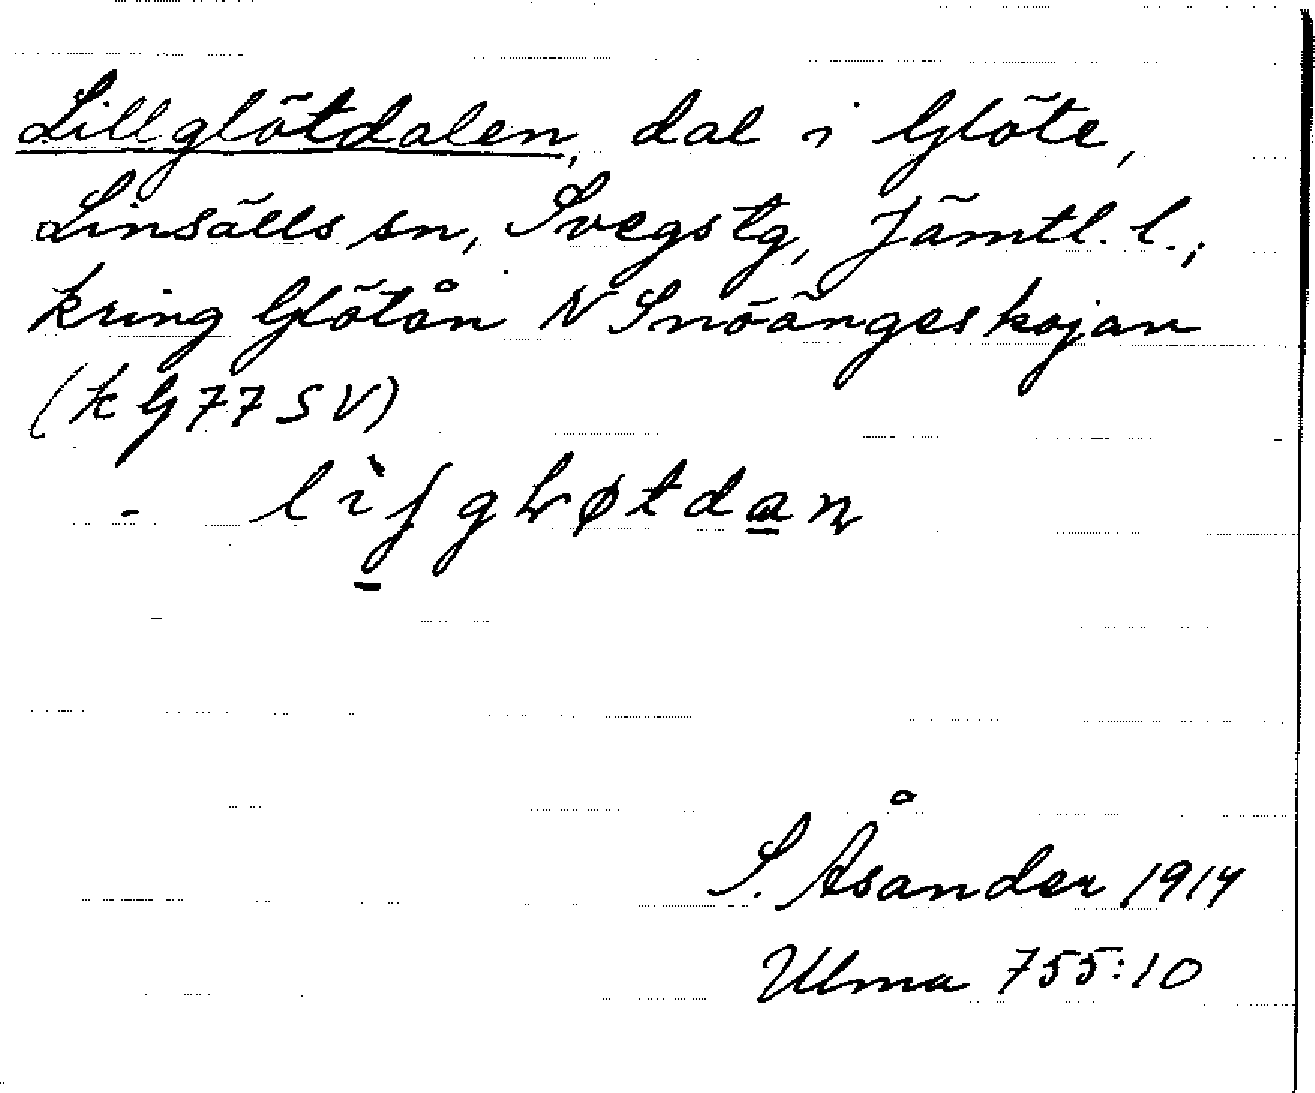 Lillglötdalen, dal i Glöte,
Linsälls sn, Svegs tg, Jämtl. l.,
kring Glötån N Snöängeskojan
(kG77SV)
-
S. Åsander 1914
Ulma 755:10